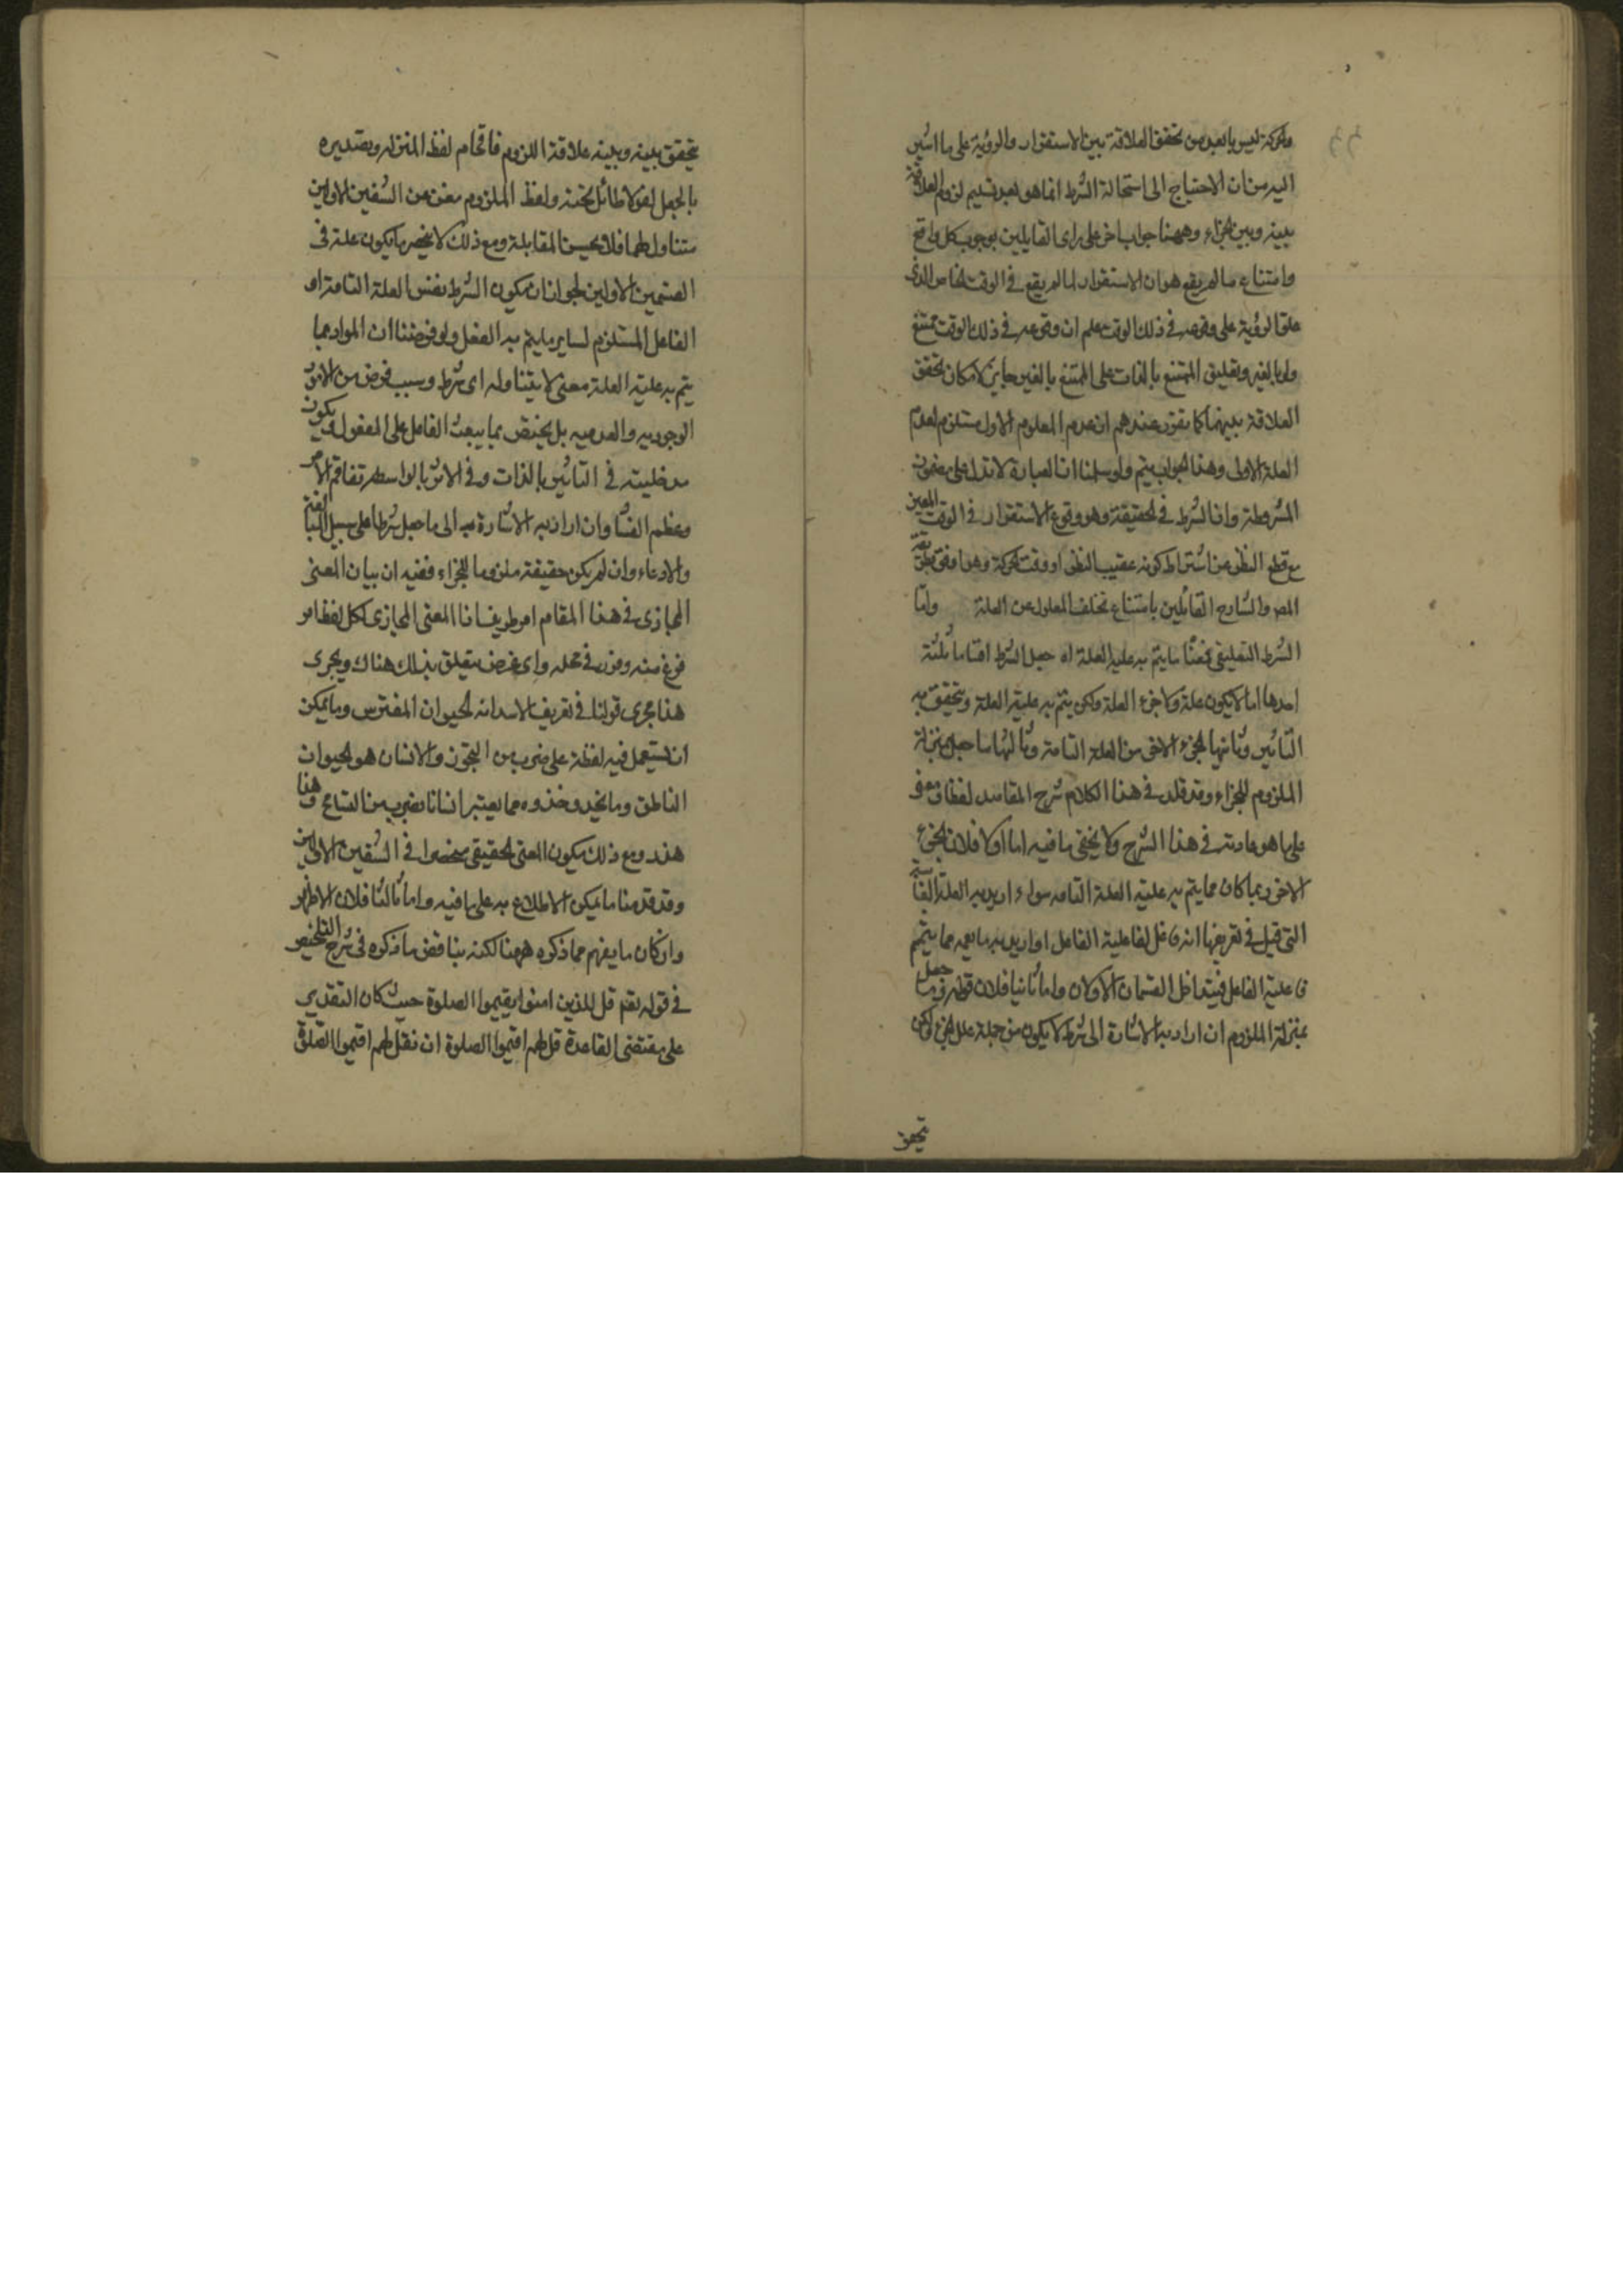 والحركة ليس بابعد من تحقق العلاقة بين الاستقرار والرؤية على ما اشير
اليه من ان الاحتياج الى استحالة الشرط انما هو بعد تسليم لزوم العلاقة
بينه وبين الجزاء وههنا جواب اخر على راى القايلين بوجوب كل واقع
وامتناع ما لم يقع هو ان الاستقرار لما لم يقع في الوقت الخاص الذى
علق الرؤية على وقوعه في ذلك الوقت علم ان وقوعه في ذلك الوقت ممتنع
ولو بالغير وتعليق الممتنع بالذات على الممتنع بالغير جايز لامكان تحقق
العلاقة بينهما كما تقرر عندهم ان عدم المعلول الاول مستلزم لعدم
العلة الاولى وهذا الجواب يتم ولو سلمنا ان العبارة لا تدل على مضمون
المشروطة وان الشرط في الحقيقة وهو وقوع الاستقرار في الوقت المعين
مع قطع النظر عن اشتراط كونه عقيب النظر او وقت الحركة وهذا وفق
المص والشارح القائلين بامتناع تخلف المعلول عن العلة واما
الشرط التعليقي فمعناه ما يتم به علية العلة اه جعل الشرط اقساما ثلثة
احدها ما لا يكون علة ولا جزء العلة ولكن يتم به علية العلة ويتحقق به
التاثير وثانيها الجزء الاخر من العلة التامة وثالثها ما جعل بمنزلة
الملزوم للجزاء وقد قلد في هذا الكلام شرح المقاصد لفظا
على ما هو عادته في هذا الشرح ولا يخفى ما فيه اما اولا فلان الجزء
الاخر ربما كان مما يتم به علية العلة التامه سواء اريد به العلة
التى قيل في تعريفها انه فاعل لفاعلية الفاعل او اريد به ما يعمه مما يتم
فاعلية الفاعل فيتداخل القسمان الاولان واما ثانيا فلان قوله وما جعل
بمنزلة الملزوم ان اراد به الاشارة الى شرط لا يكون من جملة علل الجزء لكن
تحقق
يتحقق بينه وبينه علاقة اللزوم فاقحام لفظ المنزلة وتصديره
بالجعل لغو لا طائل تحته ولفظ الملزوم مغن عن الشقين الاولين
متناول لهما فلا يحسن المقابلة ومع ذلك لا ينحصر ما يكون علة في
القسمين الاولين لجواز ان يكون الشرط نفس العلة التامة او
الفاعل المستلزم لساير ما يتم به الفعل ولو فرضنا ان المراد بما
يتم به علية العلة معنى لا يتناوله اى شرط وسبب فرض من الامور
الوجوديه والعدميه بل يختص بما يبعث الفاعل على المفعول ويكون
مدخليته في التاثير بالذات وفي الاثر بالواسطه تفاقم الامر
وعظم الفساد وان اراد به الاشارة به الى ما جعل شرطا على سبيل المبالغة
والادعاء وان لم يكن حقيقة ملزوما للجزاء ففيه ان بيان المعنى
المجازى في هذا المقام امر طريف انا المعنى المجازى لكل لفظ امر
فرغ منه وفن في محله واى غرض يتعلق بذلك هناك ويجرى
هذا مجرى قولنا في تعريف الاسد انه الحيوان المفترس وما يمكن
ان يستعمل فيه لفظة على ضرب من التجوز والانسان هو الحيوان
الناطق وما يحذو حذوه مما يعتبر انسانا بضرب من التسامح وهذا
هذر ومع ذلك يكون المعنى الحقيقي منحصرا في الشقين الاولين
وقد قدمنا ما يمكن الاطلاع به على ما فيه واما ثالثا فلان الاظهر
وان كان ما يفهم مما ذكره ههنا لكنه يناقض ما ذكره في شرح التلخيص
في قوله تعم قل للذين امنوا يقيموا الصلوة حيث كان التقدير
على مقتضى القاعدة قل لهم اقيموا الصلوة ان تقل لهم اقيموا الصلوة